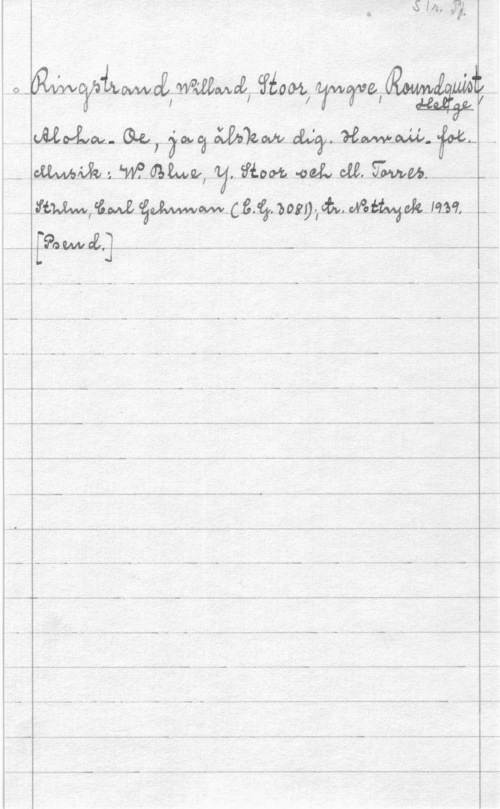 Ringstrand, Willard, Stoor, Yngve, Roundquist,
Helge
Aloha-Oe, jag älskar dig. Hawaii-fox.
Musik: W. Blue, Y. Stoor och M. Torres.
Sthlm, Carl Gehrman (C.G. 3081); tr. Nottryck 1939.
[Pseud.]